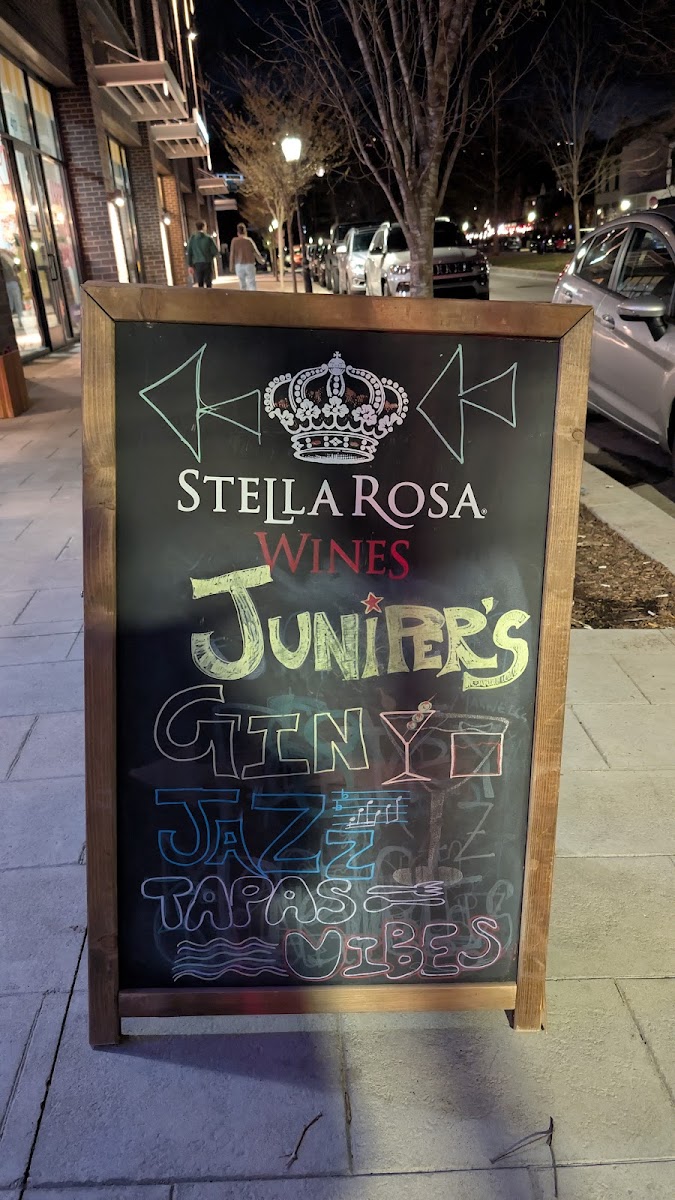 STELLA ROSA®
WINES
JUNiPER'S
GIN
JAZZ
TAPAS
VIBES